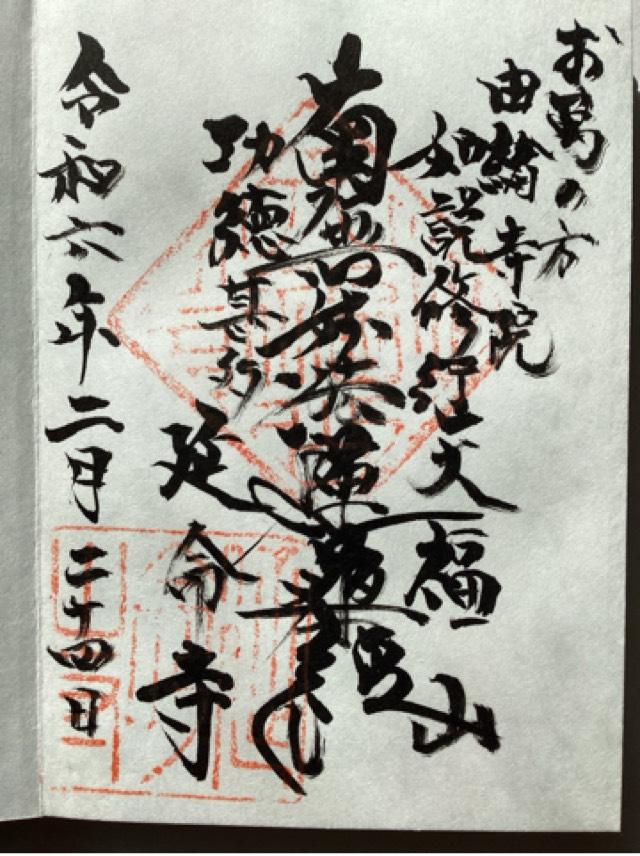 お萬の方
由緒寺院
如説修行
大福山
南無妙法蓮華経
功徳甚多
延命寺
令和六年二月二十四日